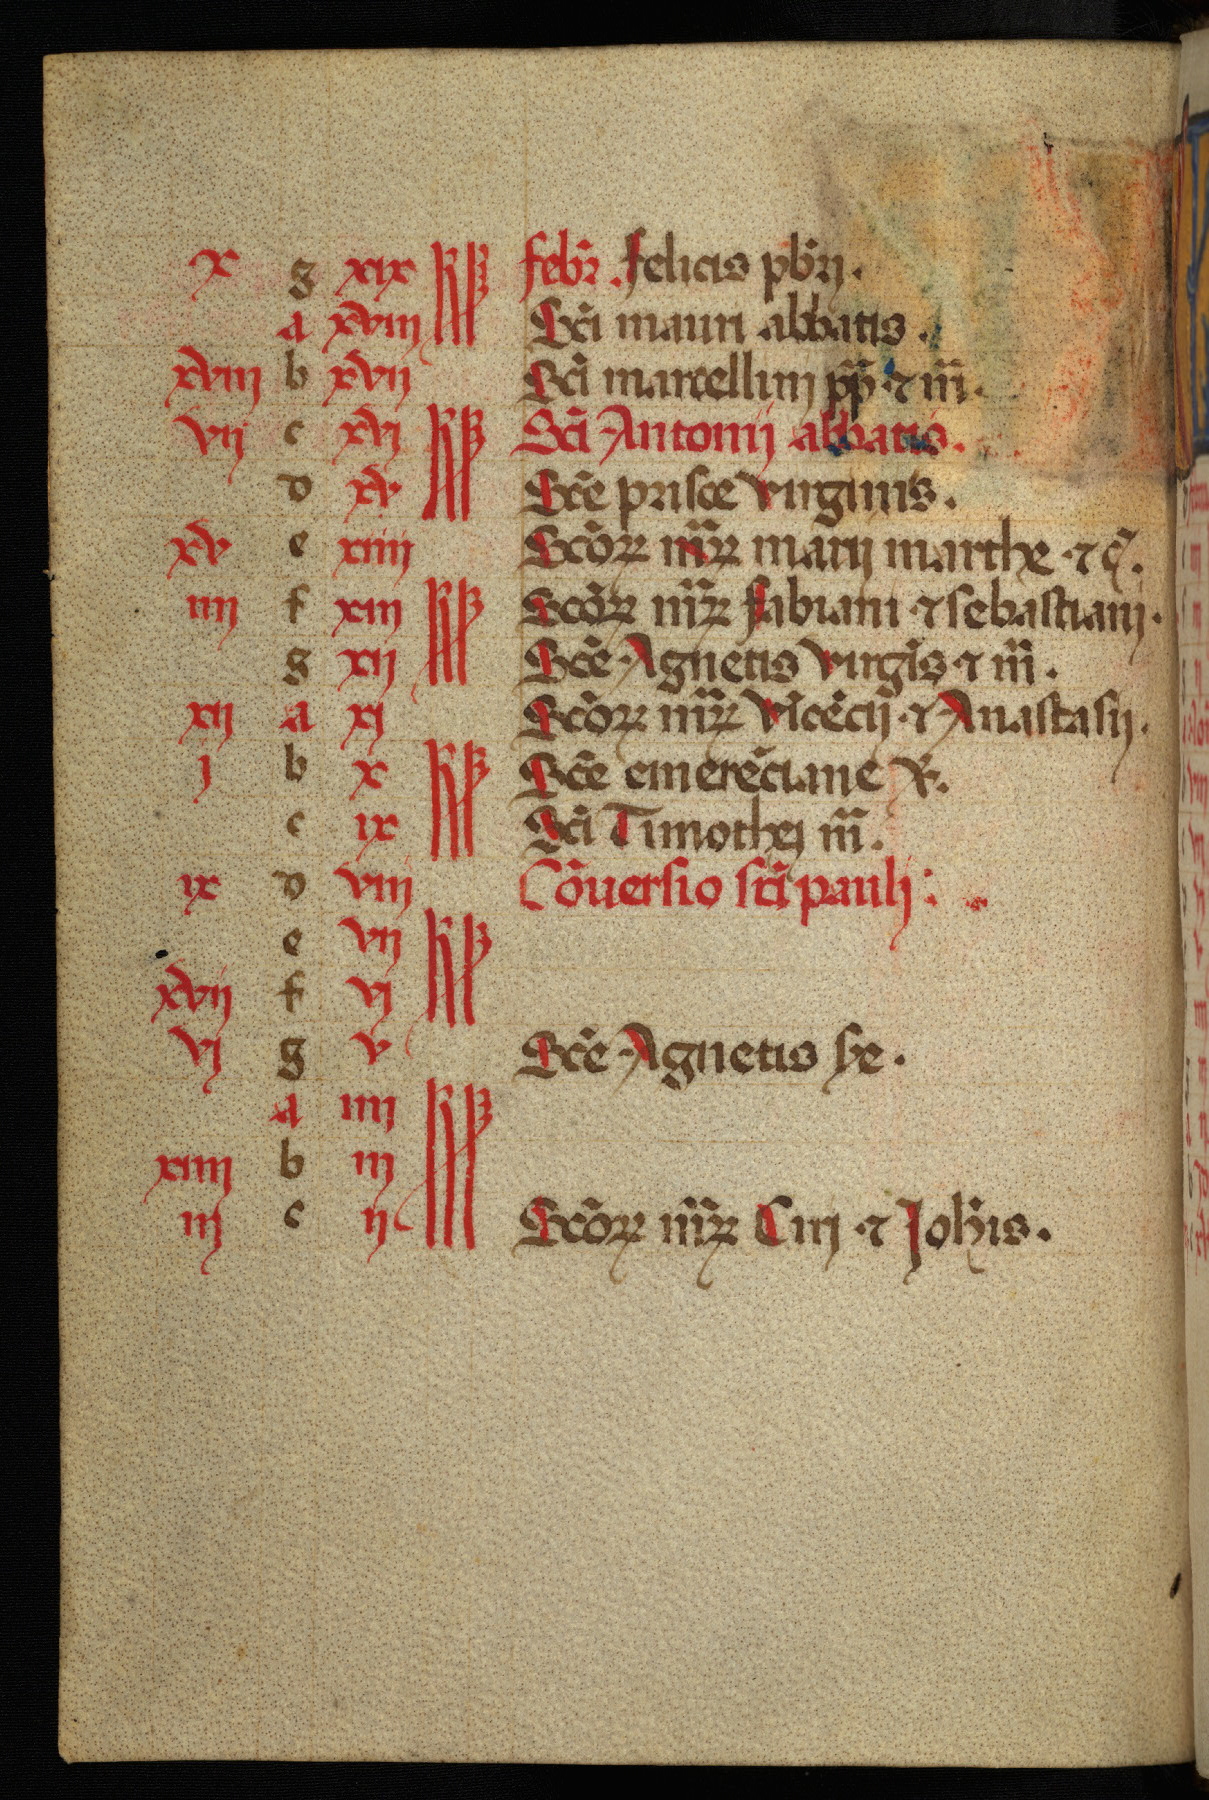 x g xix kł febr̃. felicis pb̃ri.
a xviii Sc̃i mauri abbatis.
xviii b xvii Sc̃i marcellini pp̃ ⁊ m̃.
vii c xvi kł Sc̃i Antonii abbatis.
d xv Sc̃e prisce virginis.
xv e xiiii Sc̃oꝝ mr̃ꝝ marii marthe ⁊ c̃.
iiii f xiii kł Sc̃oꝝ mr̃ꝝ fabiani ⁊ sebastiani.
g xii Sc̃e Agnetis virgĩs ⁊ m̃.
xii a xi Sc̃oꝝ mr̃ꝝ vĩcẽcii ⁊ Anastasii.
i b x kł Sc̃e emerẽciane v̾.
c ix Sc̃i Timothei m̃.
ix d viii Cõuersio sc̃i pauli:
e vii kł
xvii f vi
vi g v Sc̃e Agnetis sc̃e.
a iiii kł
xiiii b iii
iii c ii Sc̃oꝝ mr̃ꝝ Ciri ⁊ Joh̃is.